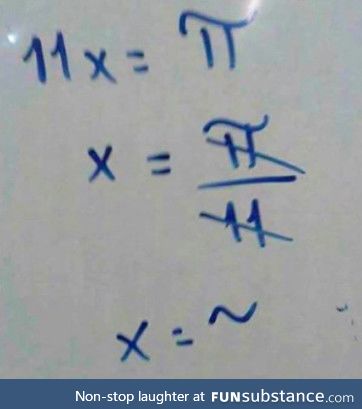 11x = π
x = π/11
x = ~
Non-stop laughter at FUNsubstance.com